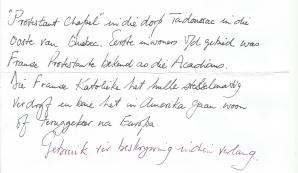 "Protestant Chapel" in die dorp Tadoussac in die
ooste van Quebec. Eerste inwoners v/d gebied was
Franse Protestante bekend as die Acadians.
Die Franse Katolieke het hulle stelselmatig
verdryf en baie het in Amerika gaan woon
of teruggekeer na Europa.
Gebruik vir beskrywing indien verlang.